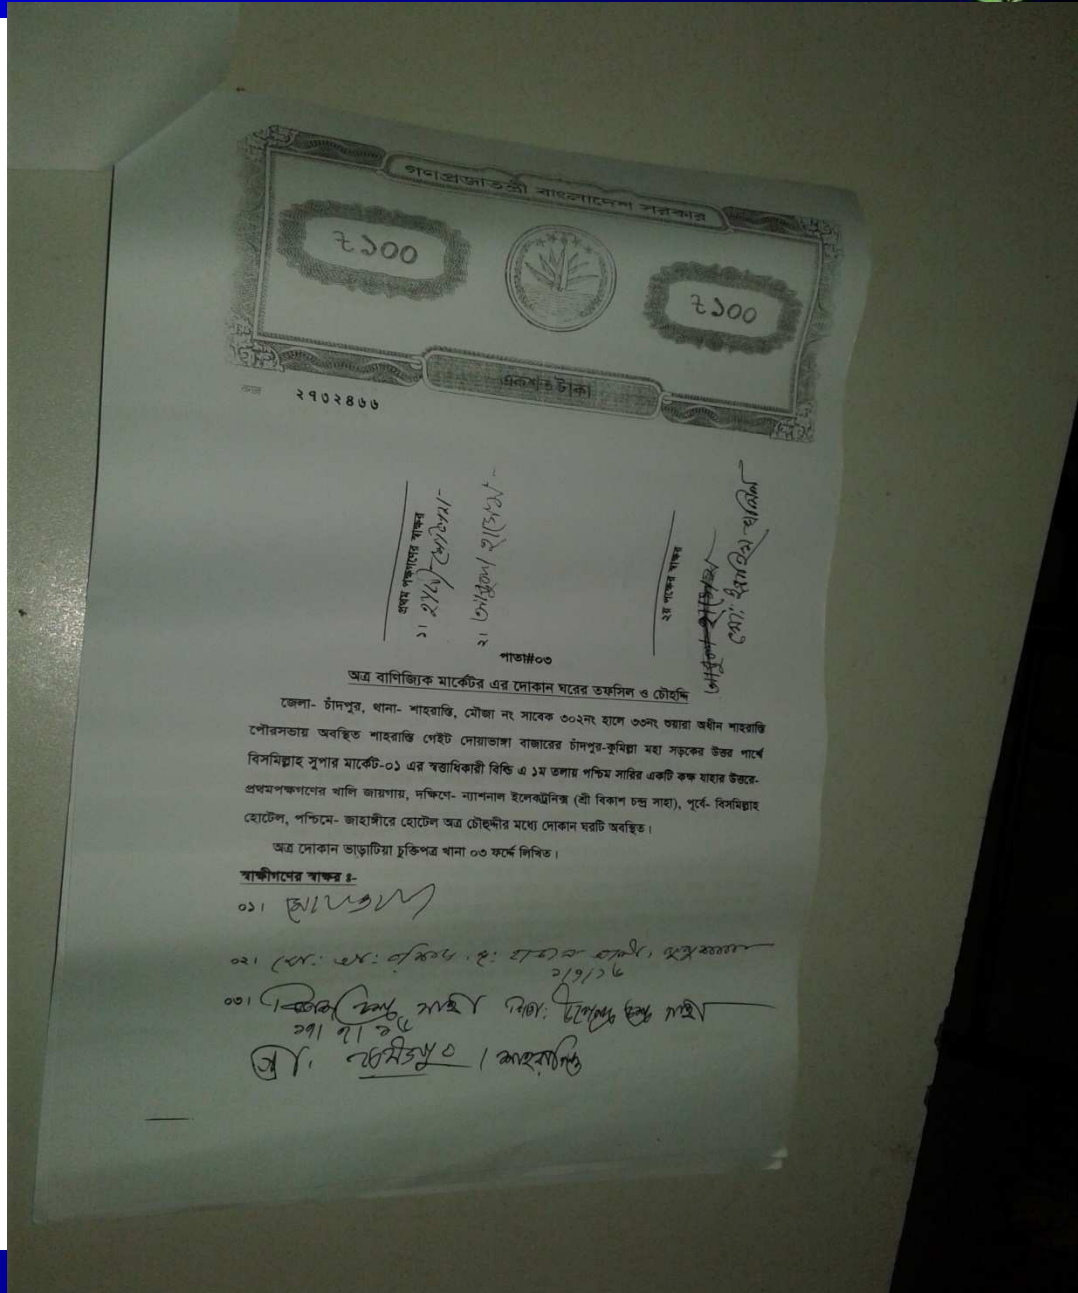 গণপ্রজাতন্ত্রী বাংলাদেশ সরকার
৳১০০
৳১০০
একশত টাকা
২৭৩২৪৬৬
প্রথম পক্ষগণের স্বাক্ষর
১।
২। আবুল হাসেম
২য় পক্ষের স্বাক্ষর
মো:
পাতা#০৩
অত্র বাণিজ্যিক মার্কেটর এর দোকান ঘরের তফসিল ও চৌহদ্দি
জেলা- চাঁদপুর, থানা- শাহরাস্তি, মৌজা নং সাবেক ৩০২নং হালে ৩৩নং শুয়ারা অধীন শাহরাস্তি
পৌরসভায় অবস্থিত শাহরাস্তি গেইট দোয়াভাঙ্গা বাজারের চাঁদপুর-কুমিল্লা মহা সড়কের উত্তর পার্শ্বে
বিসমিল্লাহ সুপার মার্কেট-০১ এর স্বত্তাধিকারী বিল্ডি এ ১ম তলায় পশ্চিম সারির একটি কক্ষ যাহার উত্তরে-
প্রথমপক্ষগণের খালি জায়গায়, দক্ষিণে- ন্যাশনাল ইলেকট্রনিক্স (শ্রী বিকাশ চন্দ্র সাহা), পূর্বে- বিসমিল্লাহ
হোটেল, পশ্চিমে- জাহাঙ্গীরে হোটেল অত্র চৌহদ্দীর মধ্যে দোকান ঘরটি অবস্থিত।
অত্র দোকান ভাড়াটিয়া চুক্তিপত্র খানা ০৩ ফর্দ্দে লিখিত।
স্বাক্ষীগণের স্বাক্ষর ঃ-
০১।
০২। মো:
০৩। চন্দ্র সাহা পিতা: চন্দ্র সাহা
গ্রা: শাহরাস্তি